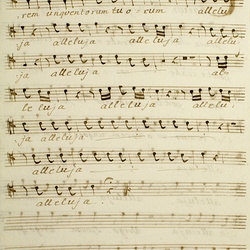 rem ungventorum tuo rum allelu
ja alleluja alleluja allelu
ja alleluja al
leluja alleluja allelu
ja alleluja
alleluja
alleluja.